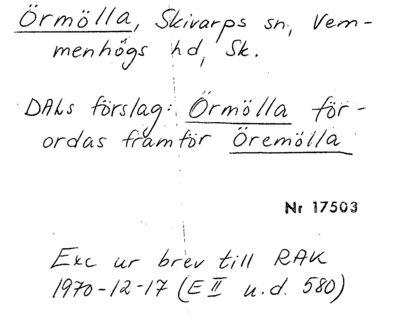 Örmölla, Skivarps sn, Vem-
menhögs hd, Sk.
DALs förslag: Örmölla för-
ordas framför Öremölla
Nr 17503
Exc ur brev till RAK
1970-12-17 (E II u.d. 580)